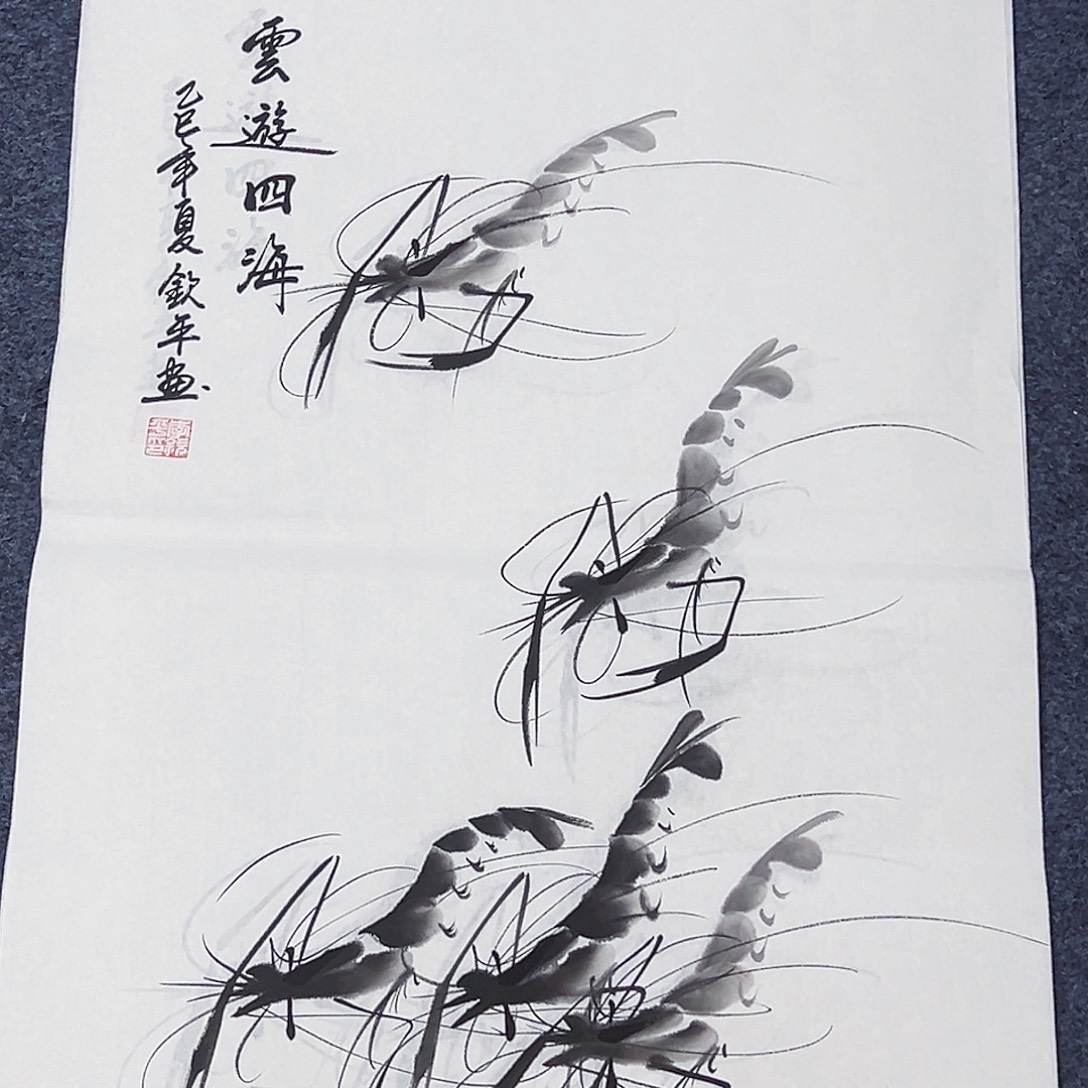 雲遊四海
乙巳年夏欽平畫